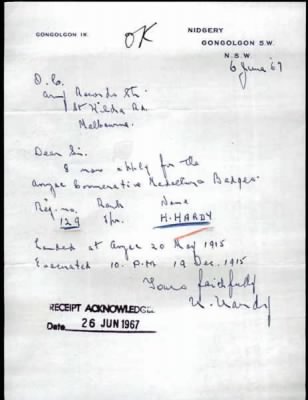 GONGOLGON 1R.
OK
NIDGERY
GONGOLGON S.W.
N.S.W.
6 June '67
O. C.
Army Records Stn.
St Kilda Rd.
Melbourne.
Dear Sir.
I now apply for the
Anzac Commerative Medallion & Badge.
Reg. no. Rank Name
129 Spr. H. HARDY
Landed at Anzac 20 May 1915
Evacuated 10. P.M 19 Dec. 1915
Yours faithfully
H. Hardy
RECEIPT ACKNOWLEDGED
Date 26 JUN 1967